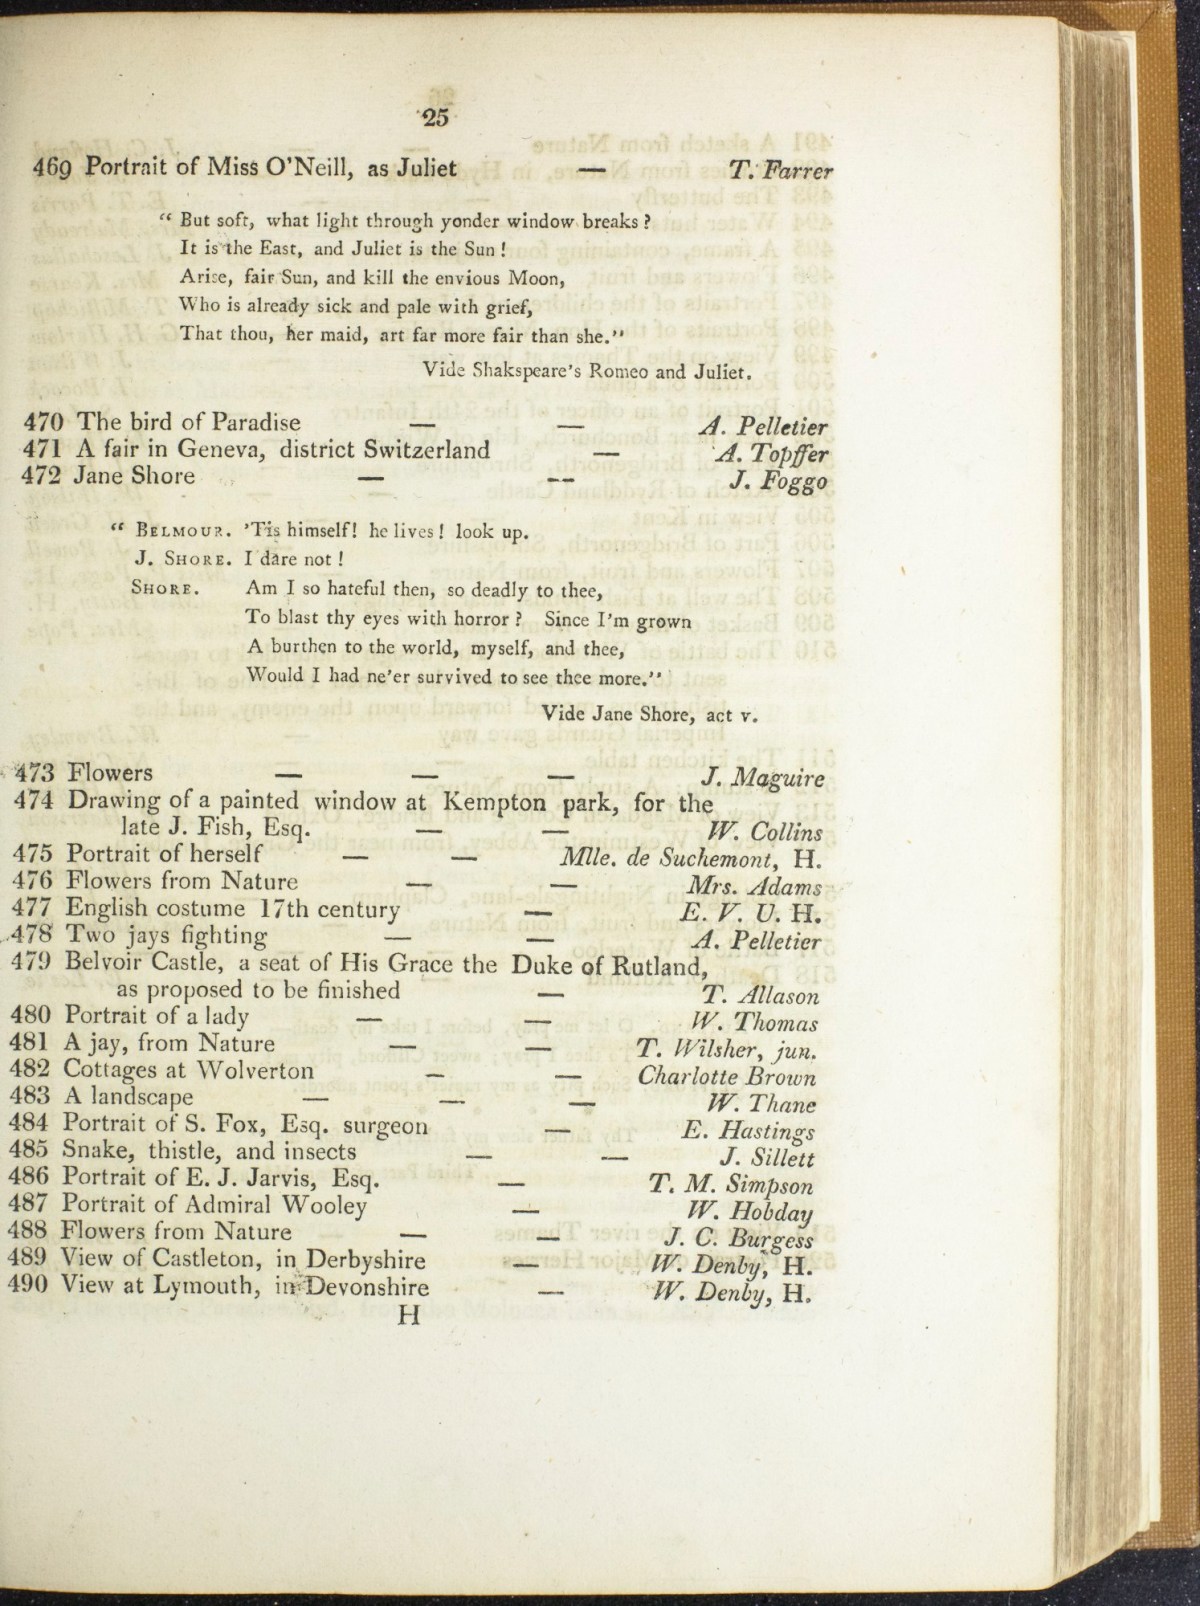 25
469 Portrait of Miss O'Neill, as Juliet — T. Farrer
“ But soft, what light through yonder window breaks ?
It is the East, and Juliet is the Sun !
Arise, fair Sun, and kill the envious Moon,
Who is already sick and pale with grief,
That thou, her maid, art far more fair than she.”
Vide Shakspeare's Romeo and Juliet.
470 The bird of Paradise — — A. Pelletier
471 A fair in Geneva, district Switzerland — A. Topffer
472 Jane Shore — -- J. Foggo
“ BELMOUR. 'Tis himself! he lives! look up.
J. SHORE. I dare not !
SHORE. Am I so hateful then, so deadly to thee,
To blast thy eyes with horror ? Since I'm grown
A burthen to the world, myself, and thee,
Would I had ne'er survived to see thee more.”
Vide Jane Shore, act v.
473 Flowers — — — J. Maguire
474 Drawing of a painted window at Kempton park, for the
late J. Fish, Esq. — — W. Collins
475 Portrait of herself — — Mlle. de Suchemont, H.
476 Flowers from Nature — — Mrs. Adams
477 English costume 17th century — E. V. U. H.
478 Two jays fighting — — A. Pelletier
479 Belvoir Castle, a seat of His Grace the Duke of Rutland,
as proposed to be finished — T. Allason
480 Portrait of a lady — — W. Thomas
481 A jay, from Nature — — T. Wilsher, jun.
482 Cottages at Wolverton — — Charlotte Brown
483 A landscape — — — W. Thane
484 Portrait of S. Fox, Esq. surgeon — E. Hastings
485 Snake, thistle, and insects — — J. Sillett
486 Portrait of E. J. Jarvis, Esq. — T. M. Simpson
487 Portrait of Admiral Wooley — W. Hobday
488 Flowers from Nature — — J. C. Burgess
489 View of Castleton, in Derbyshire — W. Denby, H.
490 View at Lymouth, in Devonshire — W. Denby, H.
H